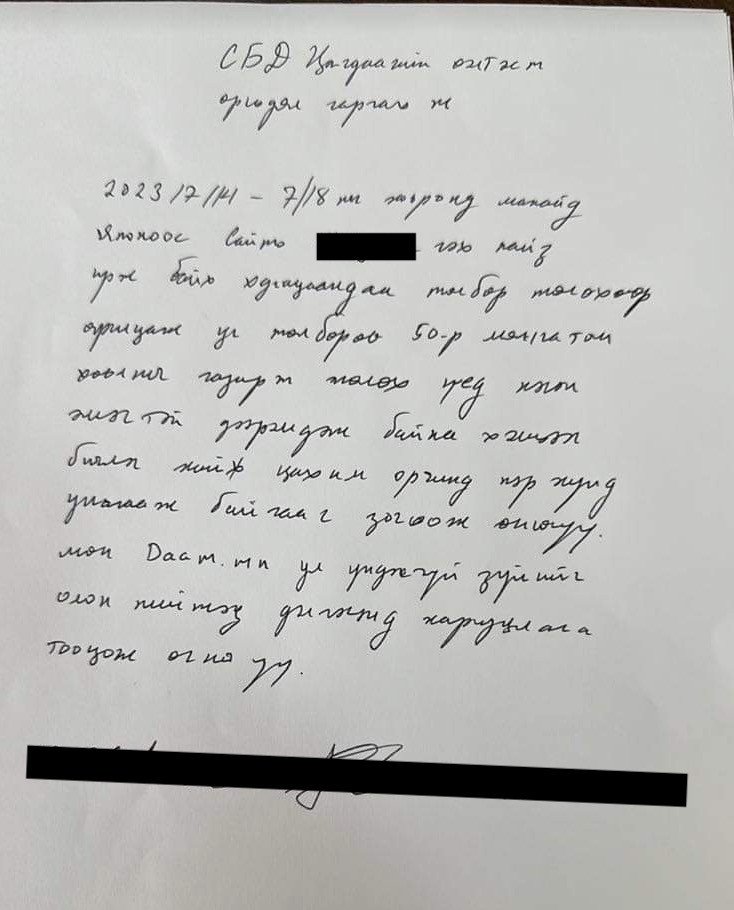 СБД Цагдаагийн хэлтэст
өргөдөл гаргах нь
2023/7/14 - 7/18 ны хооронд манайд
Японоос Сайто гэх найз
ирж байх хугацаандаа төлбөр төлөхөөр
уг төлбөрөө 50-р мянгатын
хоолны газарт төлөх үед нэгэн
эмэгтэй дээрэлдэж байна хэмээн
бичлэг хийж цахим орчинд нэр хүнд
унагааж байгааг зогсоож өгнө үү.
мөн Daam.mn үл үндэсгүй зүйлийг
олон нийтэд дэлгэхэд хариуцлага
тооцож өгнө үү.